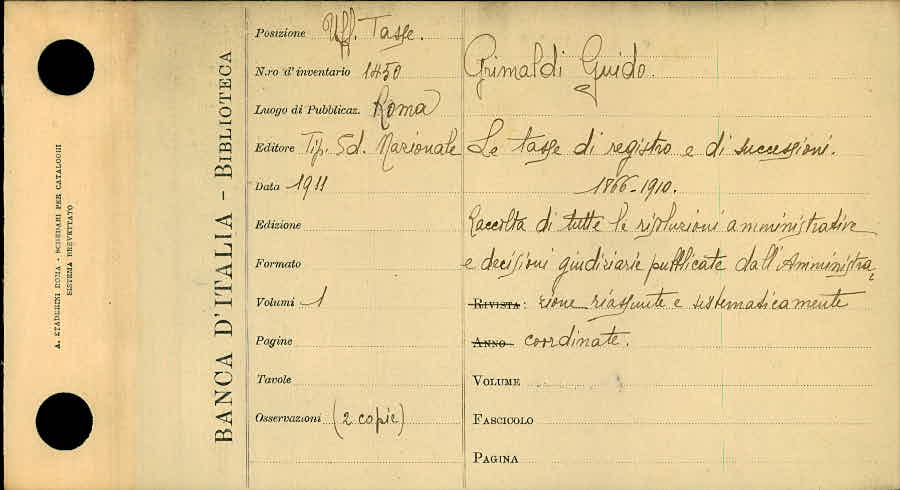 A. STADERINI ROMA - SCHEDARI PER CATALOGHI
SISTEMA BREVETTATO
BANCA D'ITALIA - BIBLIOTECA
Posizione Uff. Tasse.
N.ro d'inventario 1450
Luogo di Pubblicaz. Roma
Editore Tip. Ed. Nazionale
Data 1911
Edizione
Formato
Volumi 1
Pagine
Tavole
Osservazioni (2 copie)
Grimaldi Guido.
Le tasse di registro e di successioni.
1866-1910.
Raccolta di tutte le risoluzioni amministrative
e decisioni giudiziarie pubblicate dall'Amministra=
RIVISTA: zione riassunte e sistematicamente
ANNO coordinate.
VOLUME
FASCICOLO
PAGINA